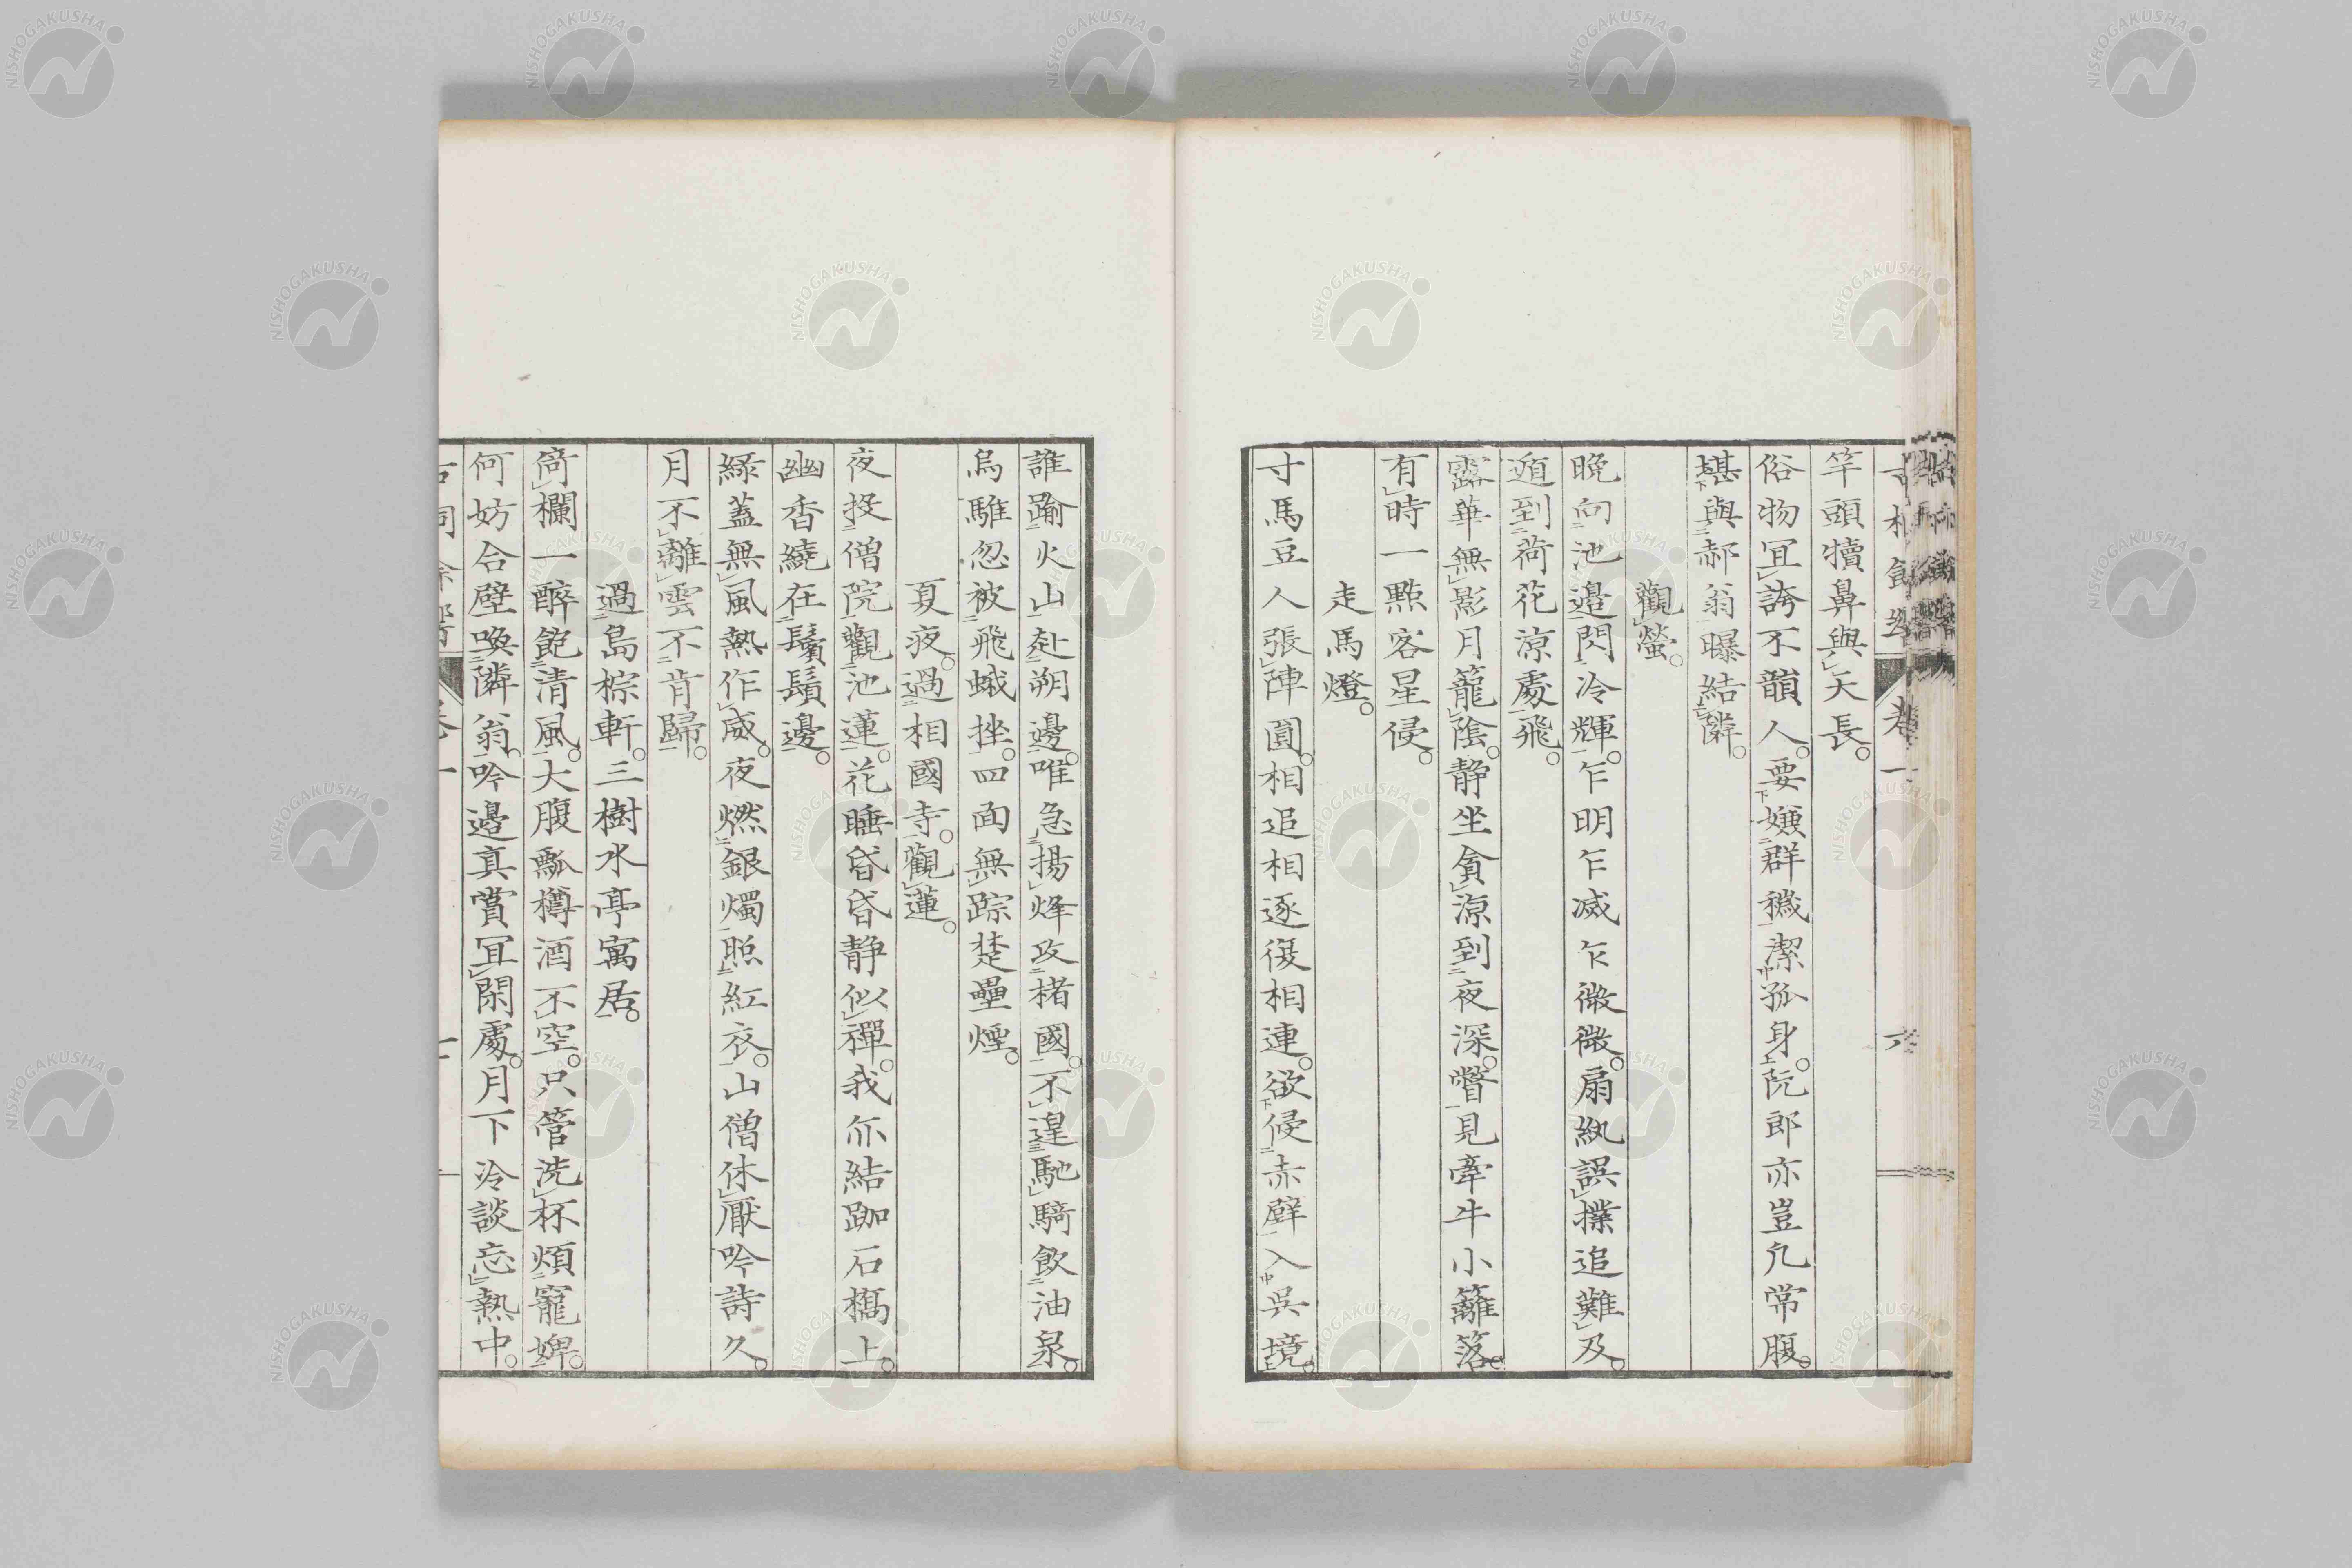 竿頭犢鼻與天長。
俗物冝誇不韻人。要嫌群穢潔孤身。阮郎亦豈凡常腹。
堪與郝翁曝結隣。
觀螢。
晚向池邊閃冷輝。乍明乍滅乍微微。扇紈誤撲追難及。
遁到荷花涼處飛。
露華無影月籠陰。静坐貪涼到夜深。瞥見牽牛小籬落。
有時一點客星侵。
走馬燈。
寸馬豆人張陣圓。相追相逐復相連。欲侵赤壁入吳境。
誰踰火山赴朔邊。唯急揚烽攻楮國。不遑馳騎飲油泉。
烏騅忽被飛蛾挫。四面無踪楚壘煙。
夏夜。過相國寺。觀蓮。
夜投僧院觀池蓮。花睡昏昏静似禪。我亦結跏石橋上。
幽香繞在鬢鬚邊。
綠蓋無風熱作威。夜燃銀燭照紅衣。山僧休厭吟詩久。
月不離雲不肯歸。
過島棕軒。三樹水亭寓居。
倚欄一醉飽清風。大腹瓢樽酒不空。只管洗杯煩寵婢。
何妨合壁喚隣翁。吟邊真賞冝閑處。月下冷談忘熱中。
卷一
六
NISHOGAKUSHA